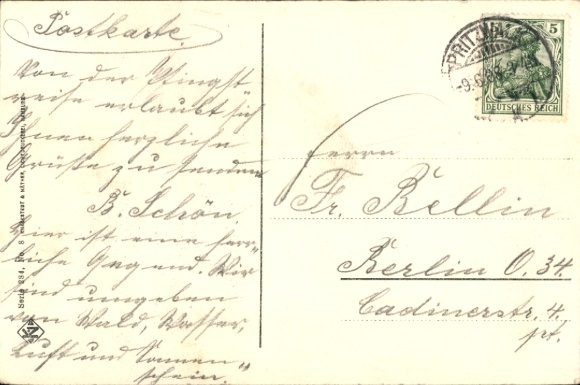 Postkarte.
Von der Pfingst
reise erlaubt sich
Ihnen herzliche
Grüße zu senden
B. Schön.
Hier ist eine herr-
liche Gegend. Wir
sind umgeben
von Wald, Wasser,
Luft und Sonnen-
schein.
Serie 284, No. 8
PRITZWALK
DEUTSCHES REICH
5
Herrn
Fr. Bellin
Berlin O. 34.
Cadinerstr. 4.
pt.